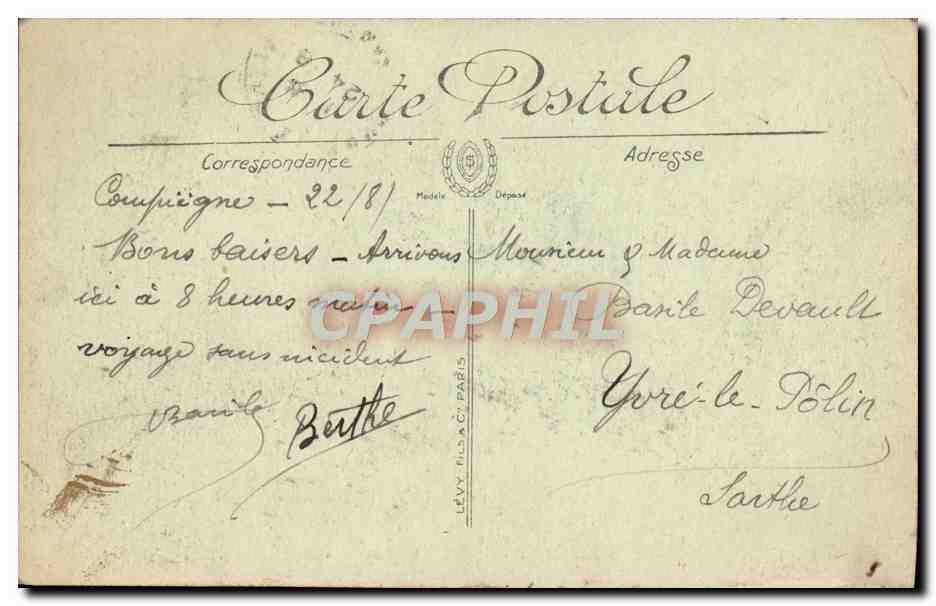 Carte Postale
Correspondance
Adresse
Modèle Déposé
$
Compiègne - 22/8/
Bons baisers - Arrivons
ici à 8 heures matin -
voyage sans incident
Basile Berthe
Monsieur & Madame
Basile Devault
Yvré-le-Pôlin
Sarthe
LÉVY FILS & Cie PARIS
CPAPHIL